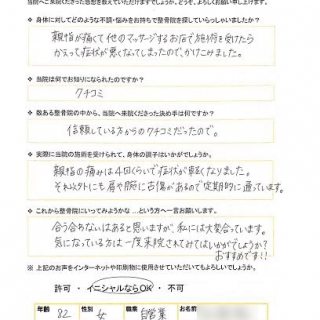 当院へご来院くださった感想を教えていただけますでしょうか。どうぞ、よろしくお願い申し上げます。
❖ 身体に対してどのような不調・悩みをお持ちで整骨院を探していらっしゃいましたか？
親指が痛くて他のマッサージするお店で施術を受けたら
かえって症状が悪くなってしまったので、かけこみました。
❖ 当院は何でお知りになられたのですか？
クチコミ
❖ 数ある整骨院の中から、当院へ来院くださった決め手は何ですか？
信頼している方からのクチコミだったので。
❖ 実際に当院の施術を受けられて、身体の調子はいかがでしょうか。
親指の痛みは4回くらいで症状が軽くなりました。
それ以外にも肩や腕に古傷があるので定期的に通っています。
❖ これから整骨院にいってみようかな …という方へ一言お願いします。
合う合わないはあると思いますが、私には大変合っています。
気になっている方は一度来院されてみてはいかがでしょうか？
おすすめです!!
❖ 上記のお声をインターネットや印刷物に使用させていただいてもよろしいでしょうか。
許可 ・ イニシャルならOK ・ 不可
年齢 82 性別 女 職業 自営業 お名前